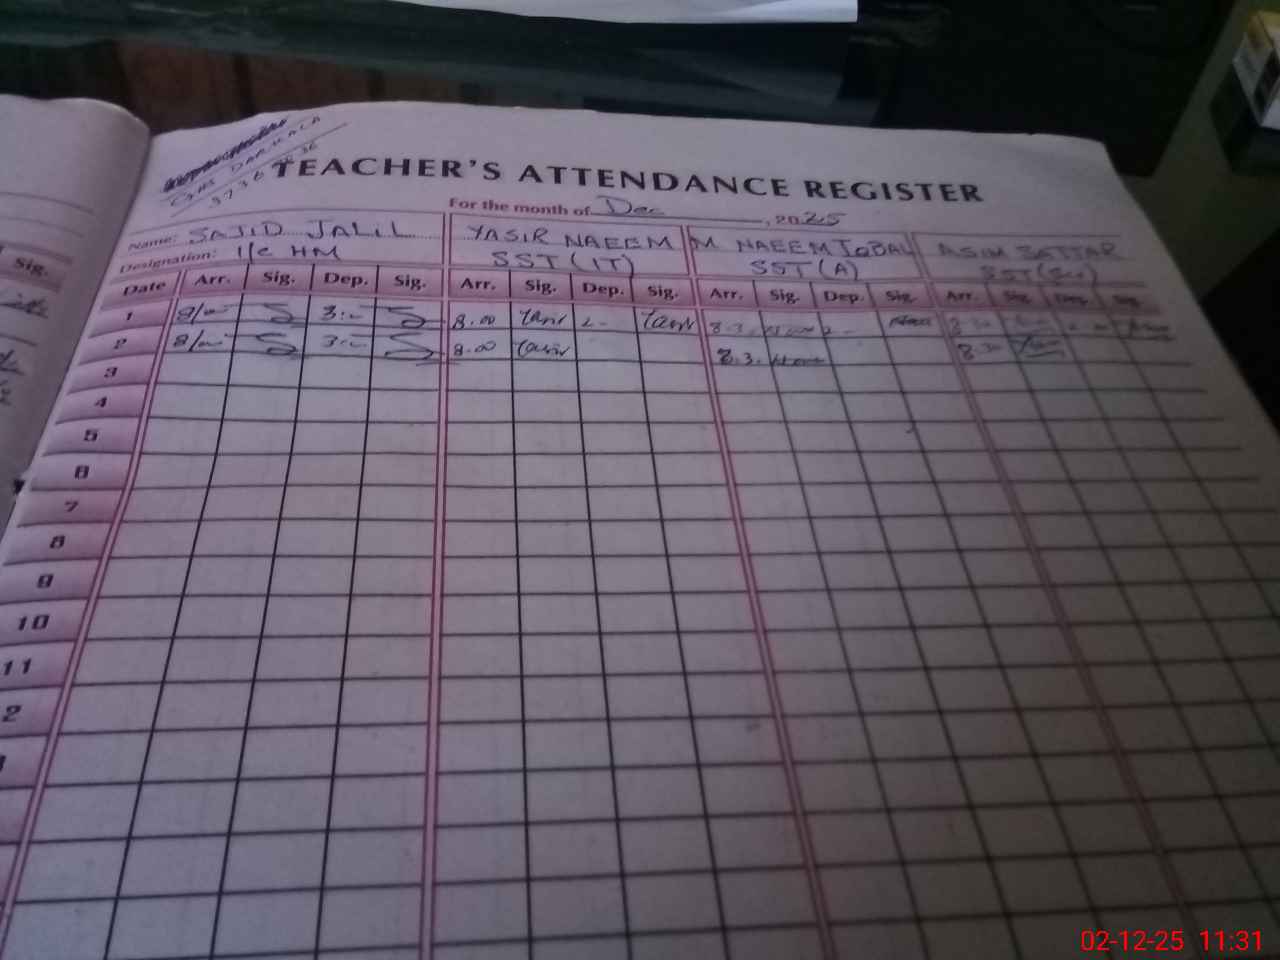 GHS DARKALA
373600 36
TEACHER'S ATTENDANCE REGISTER
For the month of Dec, 2025
Name: SAJID JALIL YASIR NAEEM M NAEEM IQBAL ASIM SATTAR
Designation: I/C HM SST(IT) SST(A) SST(Sci)
Sig.
Date Arr. Sig. Dep. Sig. Arr. Sig. Dep. Sig. Arr. Sig. Dep. Sig. Arr. Sig. Dep. Sig.
1 8/00 3:00 8.00 Yasir 2- Yasir 8.3. 2- 8.30
2 8/00 3:00 8.00 Yasir 8.3. 8.30
3
4
5
6
7
8
9
10
11
2
02-12-25 11:31